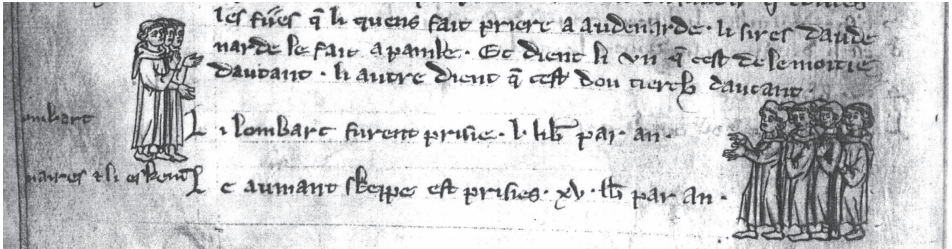 les fiies q̄ li quens fait priere a audenarde · li sires daude
narde le fait a pamle · Et dient li vn q̄ cest de le moitie
dautant · li autre dient q̄ cest dou tierch dautant ·
ombart
Li lombart furent prisie · l · lib par an ·
naires & li es
Le aumant skeppe est prisies · xv · lb par an ·